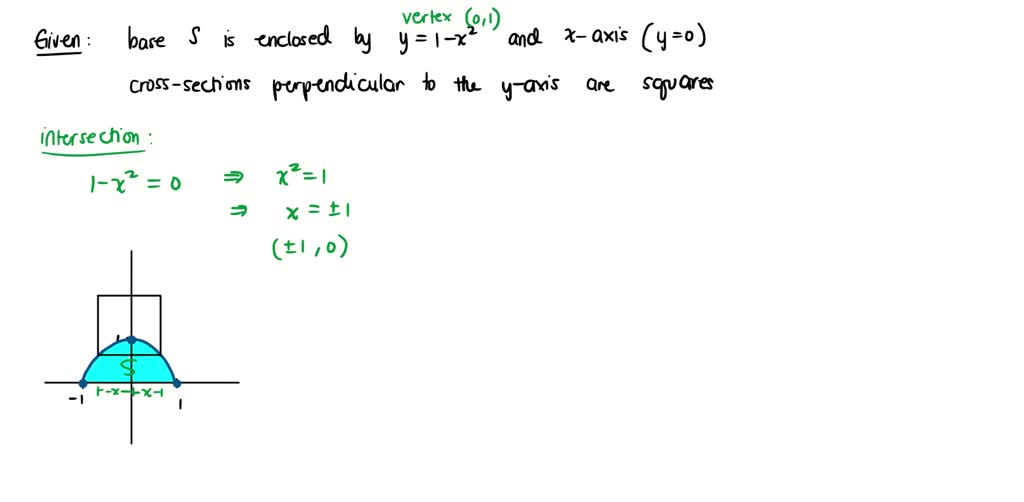 vertex (0,1)
Given: base S is enclosed by y = 1-x² and x-axis (y=0)
cross-sections perpendicular to the y-axis are squares
intersection:
1-x² = 0 ⇒ x² = 1
⇒ x = ±1
(±1, 0)
1
S
-x x
-1 1